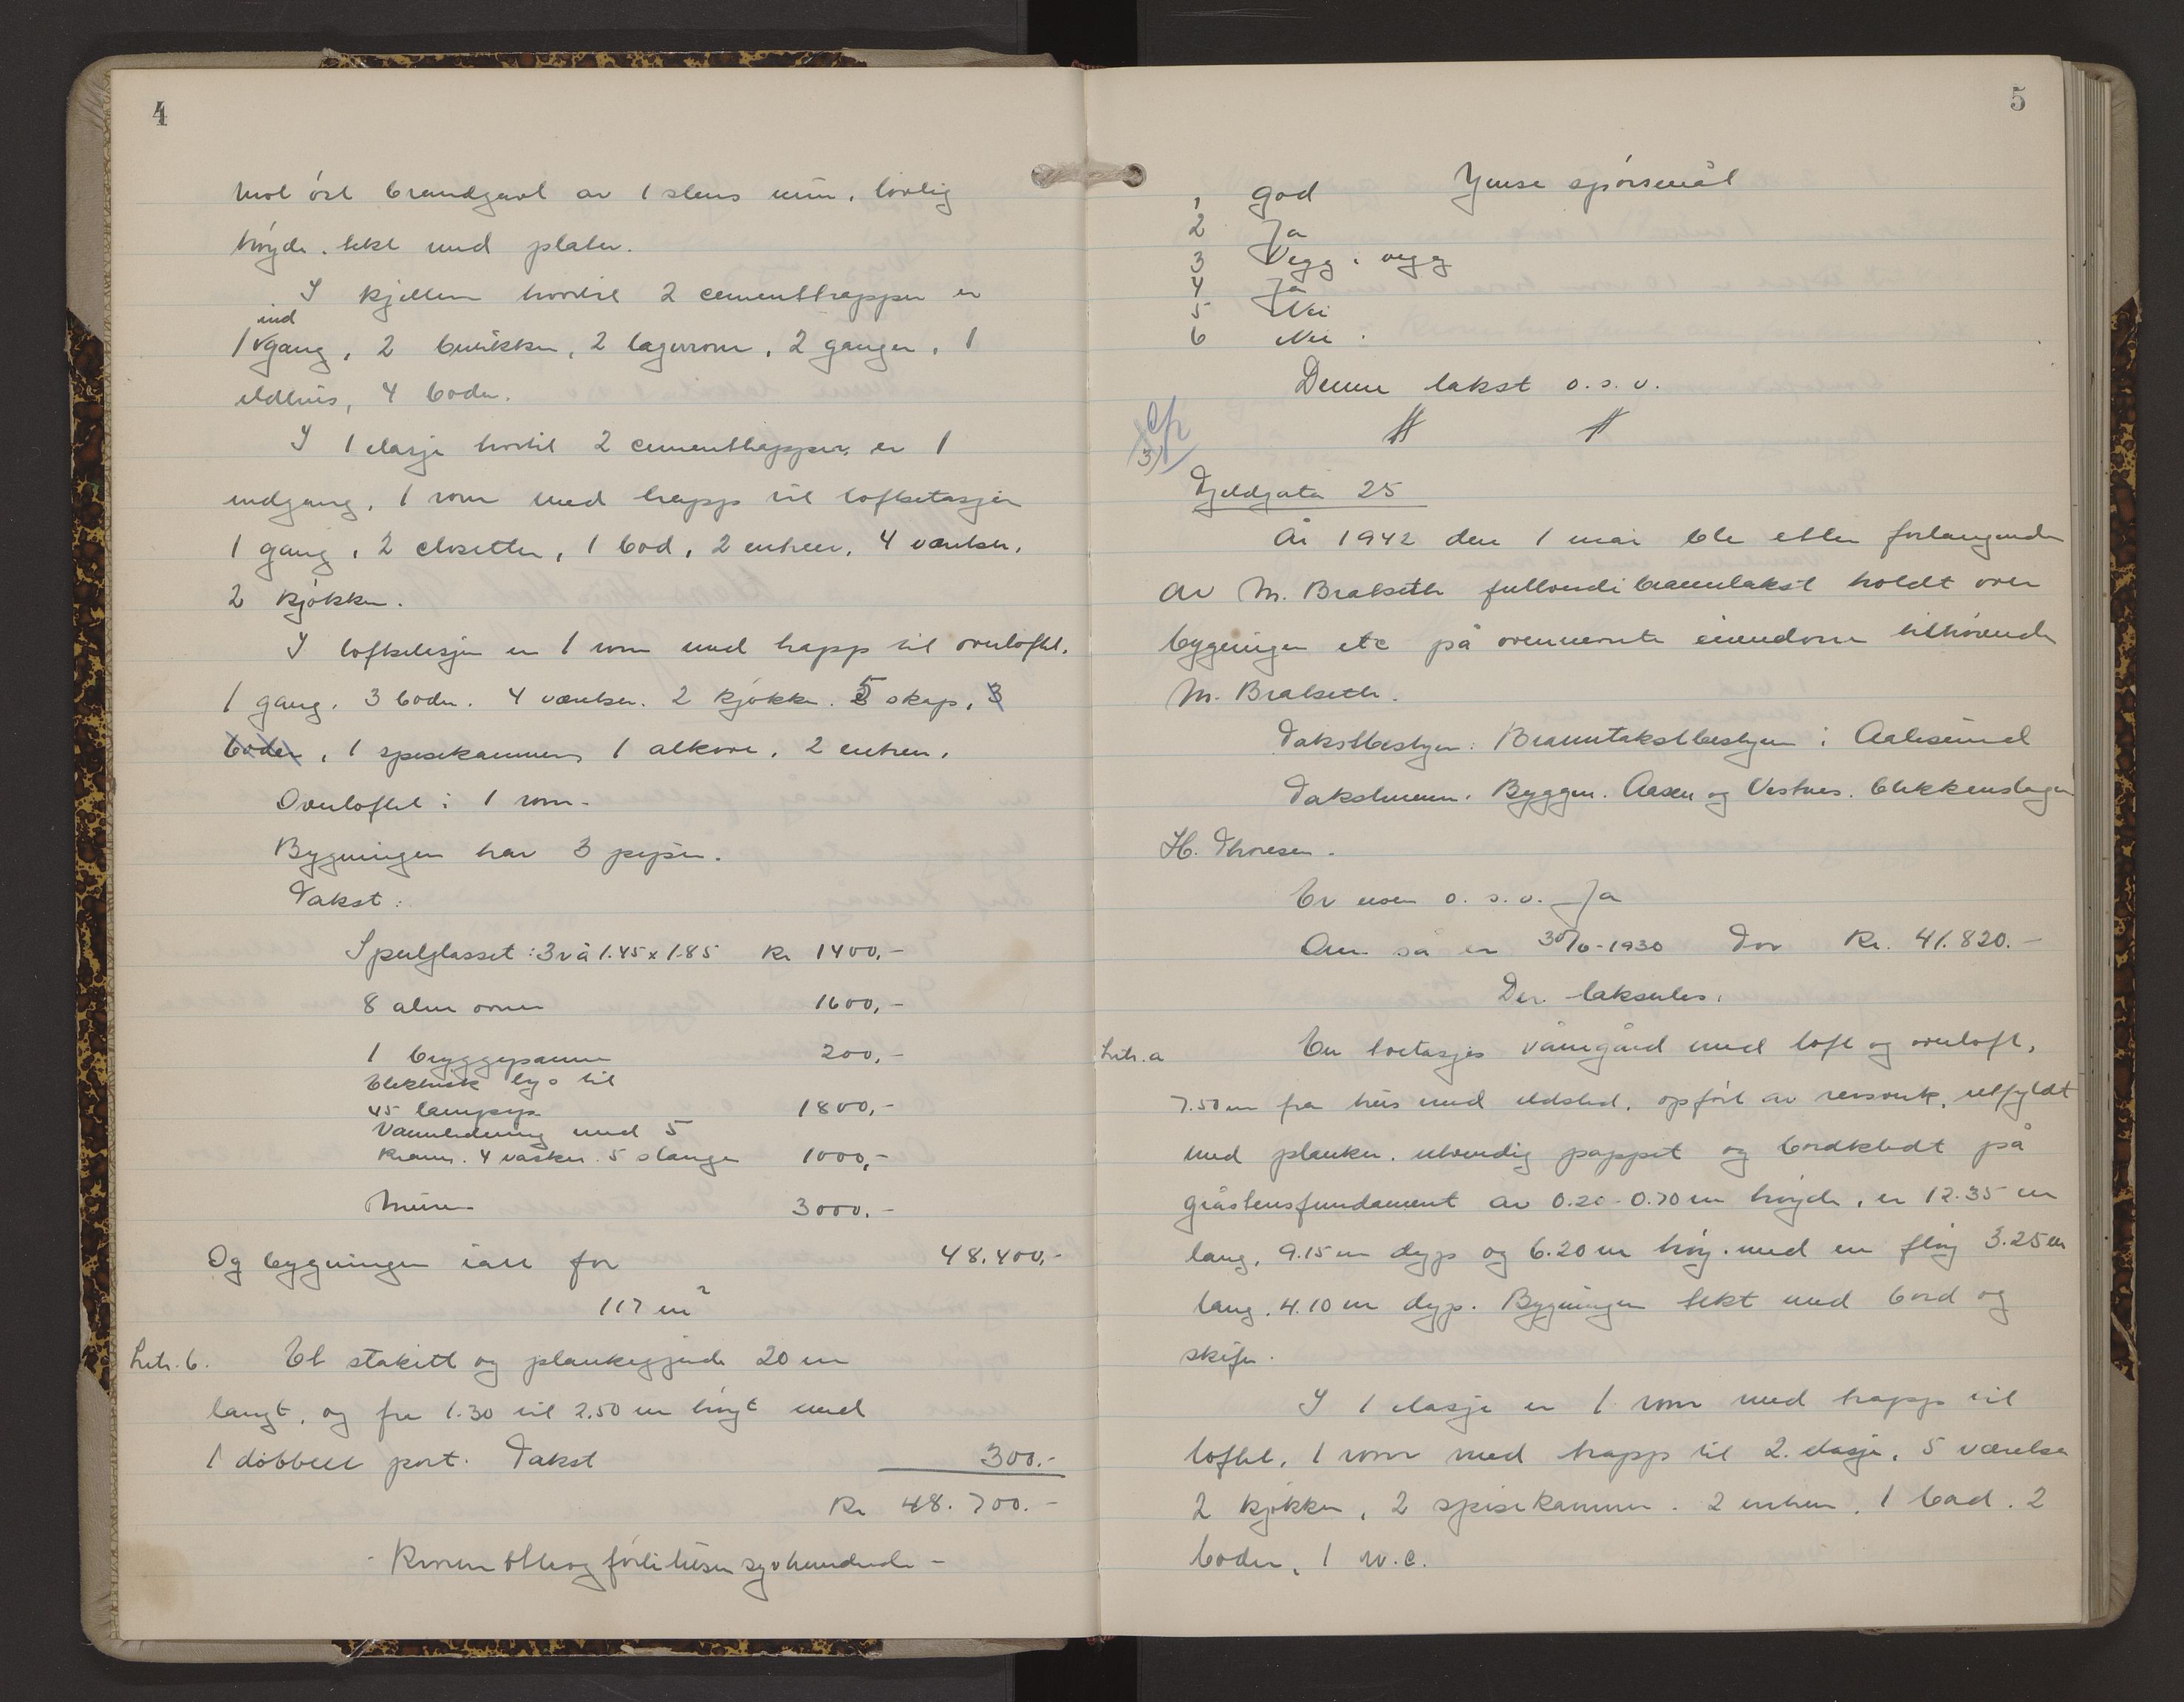 4
Mot öst brandgavl av 1 stens mur, lovlig
höyde. tekt med plater.
I kjelleren hvortil 2 cementtrapper er
ind
1 gang, 2 butikker, 2 lagerrom, 2 ganger, 1
eldhus, 4 boder.
I 1 etasje hvortil 2 cementtrapper, er 1
indgang, 1 rom med trapp til loftsetasjen
1 gang, 2 closetter, 1 bod, 2 entreer, 4 værelser,
2 kjøkken.
I loftsetasjen er 1 rom med trapp til overloftet,
1 gang. 3 boder. 4 værelser. 2 kjøkken. 5 skap, 3
boder, 1 spisekammer, 1 alkove, 2 entreer,
Overloftet: 1 rom.
Bygningen har 3 piper.
Takst:
Speilglasset: 3 r à 1.45 x 1.85 Kr 1400,-
8 alm ovner 1600,-
1 bryggepanne 200,-
Elektrisk lys til
45 lampep. 1800,-
Vannledning med 5
kraner. 4 vasker. 5 slanger 1000,-
Muren 3000.-
Og bygningen ialt for 48.400,-
117 m²
Litr. b. Et stakitt og plankegjerde 20 m
langt, og fra 1.30 til 2.50 m höyt med
1 dobbelt port. Takst 300.-
Kr 48.700.-
- Kroner otteogförtitusen syvhundrede -
5
Ymse spörsmål
1 god
2 Ja
3 Vegg i vegg
4 Ja
5 Nei
6 Nei.
Denne takst o.s.v.
Fjeldgata 25
År 1942 den 1 mai ble etter forlangende
av M. Bratseth fullverdi branntakst holdt over
bygninger etc på ovennevnte eiendom tilhörende
M. Bratseth.
Takstbestyrer: Branntakstbestyrer i Aalesund
Takstmenn. Byggm. Aasen og Vestnes. blikkenslager
H. Thoresen.
Er noen o.s.v. Ja
Om så er 30/6-1930 for Kr. 41.820.-
Der taksertes:
Litr. a En toetasjes våningård med loft og overloft,
7.50 m fra hus med ildsted, opfört av reisverk, utfyldt
med planker. utvendig pappet og bordkledt på
gråstensfundament av 0.20-0.70 m höyde, er 12.35 m
lang, 9.15 m dyp og 6.20 m höy. med en flöy 3.25 m
lang, 4.10 m dyp. Bygningen tekt med bord og
skifer.
I 1 etasje er 1 rom med trapp til
loftet, 1 rom med trapp til 2. etasje, 5 værelser
2 kjøkken, 2 spisekammer. 2 entreer, 1 bad. 2
boder, 1 w.c.